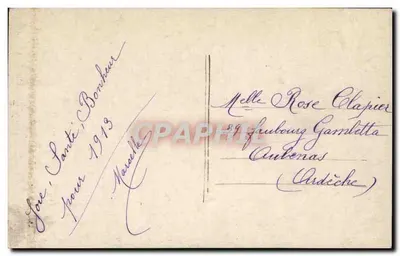 Joie, Santé, Bonheur
pour 1913
Marcelle
Melle Rose Clapier
29 faubourg Gambetta
Aubenas
(Ardèche)
CPAPHIL